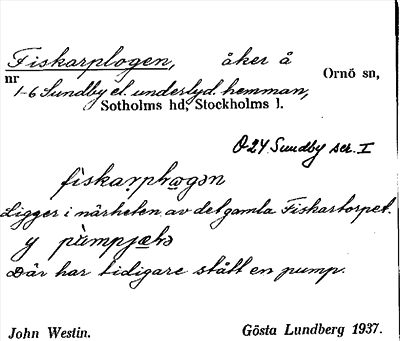 Fiskarplogen, åker å
nr Ornö sn,
1-6 Sundby el. underlyd. hemman,
Sotholms hd, Stockholms l.
O 24 Sundby ser. I
Ligger i närheten av det gamla Fiskartorpet.
Där har tidigare stått en pump.
John Westin. Gösta Lundberg 1937.